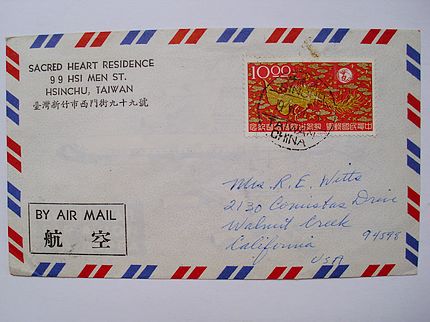 SACRED HEART RESIDENCE
99 HSI MEN ST.
HSINCHU, TAIWAN
臺灣新竹市西門街九十九號
10.00
中華民國郵票
HSINCHU
CHINA
BY AIR MAIL
航空
Mrs. R. E. Witts
2130 Comistas Drive
Walnut Creek
California 94598
USA